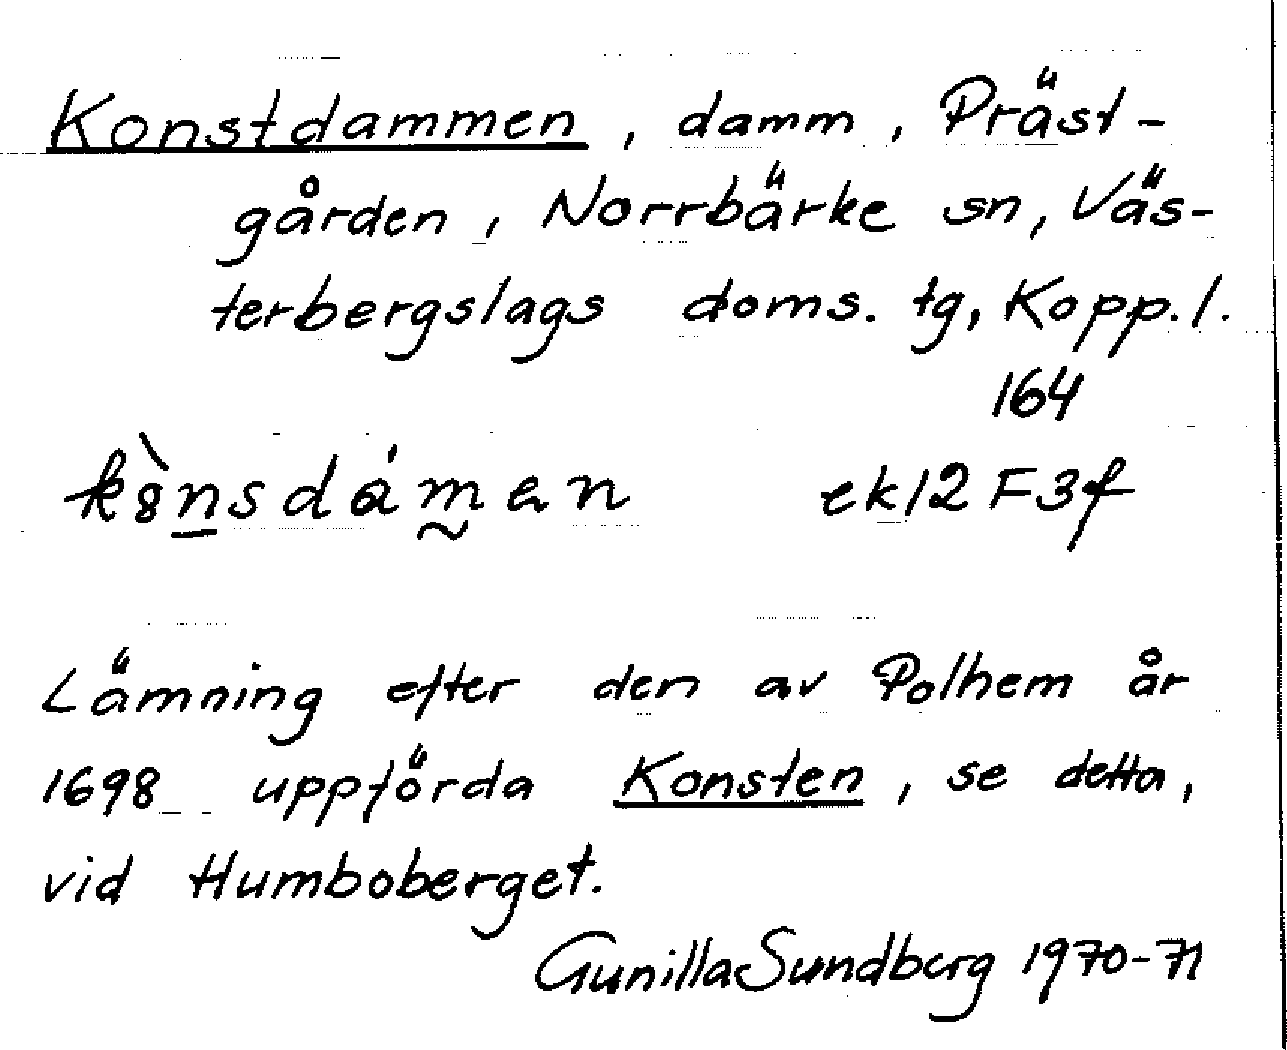 Konstdammen, damm, Präst-
gården, Norrbärke sn, Väs-
terbergslags doms. tg, Kopp.l.
164
ek 12 F3f
Lämning efter den av Polhem år
1698 uppförda Konsten, se detta,
vid Humboberget.
Gunilla Sundberg 1970-71